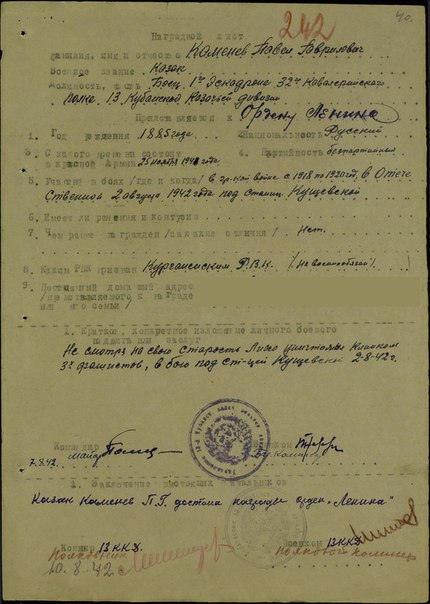 40.
242
Наградной лист
фамилия, имя и отчество Каменев Павел Гаврилович
Военное звание Казак
Должность, часть Боец 1го эскадрона 32го Кавалерийского
Полка 13 Кубанской Казачьей дивизии
Представляется к Ордену Ленина
1. Год рождения 1885 года 2. Национальность Русский
3. С какого времени состоит в красной Армии 25 ноября 1941 года 4. Партийность беспартийный
5. Участие в боях /где и когда/ в гр-кой войне с 1918 по 1920 год, в Отече
Ственной 2 августа 1942 года под станиц. Кущевской
6. Имеет ли ранения и контузии
7. Чем ранее награжден /за какие отличия/ Нет.
8. Каким РВК призван Курганинским Р.В.К. (Не военнообязан)
9. Постоянный домашний адрес
/представляемого к награде
или его семьи/
1. Краткое, конкретное изложение личного боевого
подвига или заслуг
Не смотря на свою Старость Лихо уничтожил Клинком
3х фашистов, в бою под ст-цей Кущевской 2-8-42г.
Командир
Военком
7.8.42. майор
Ст. Комиссар
2. Заключение вышестоящих начальников
Казак Каменев П.Г. достоин награды орден „Ленина"
Комдир 13 ККД
Военком 13 ККД
Полковник
Полковой комиссар
10.8.42